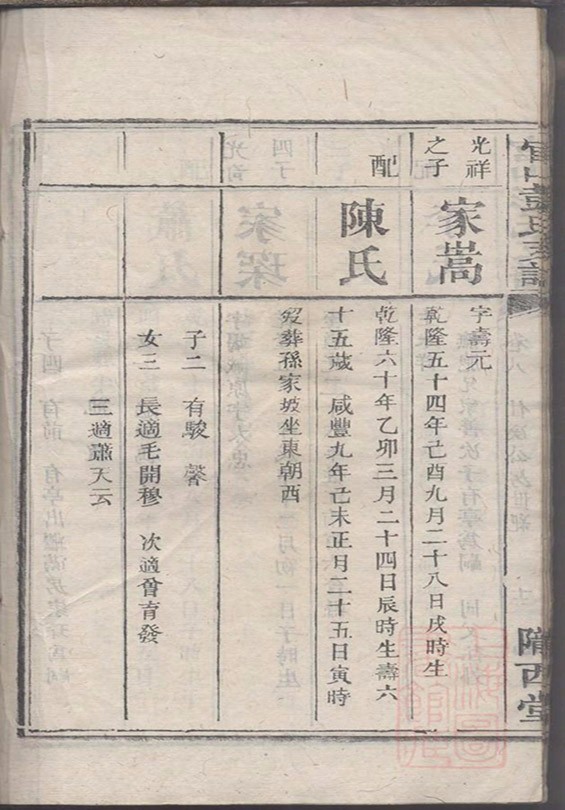 光祥之子
家嵩
字壽元
乾隆五十四年己酉九月二十八日戌時生
配
陳氏
乾隆六十年乙卯三月二十四日辰時生壽六
十五歲 咸豐九年己未正月二十五日寅時
歿葬孫家坡坐東朝西
子二 有駿 馨
女三 長適毛開穆 次適曾育發
三適蕭天云
隋西堂